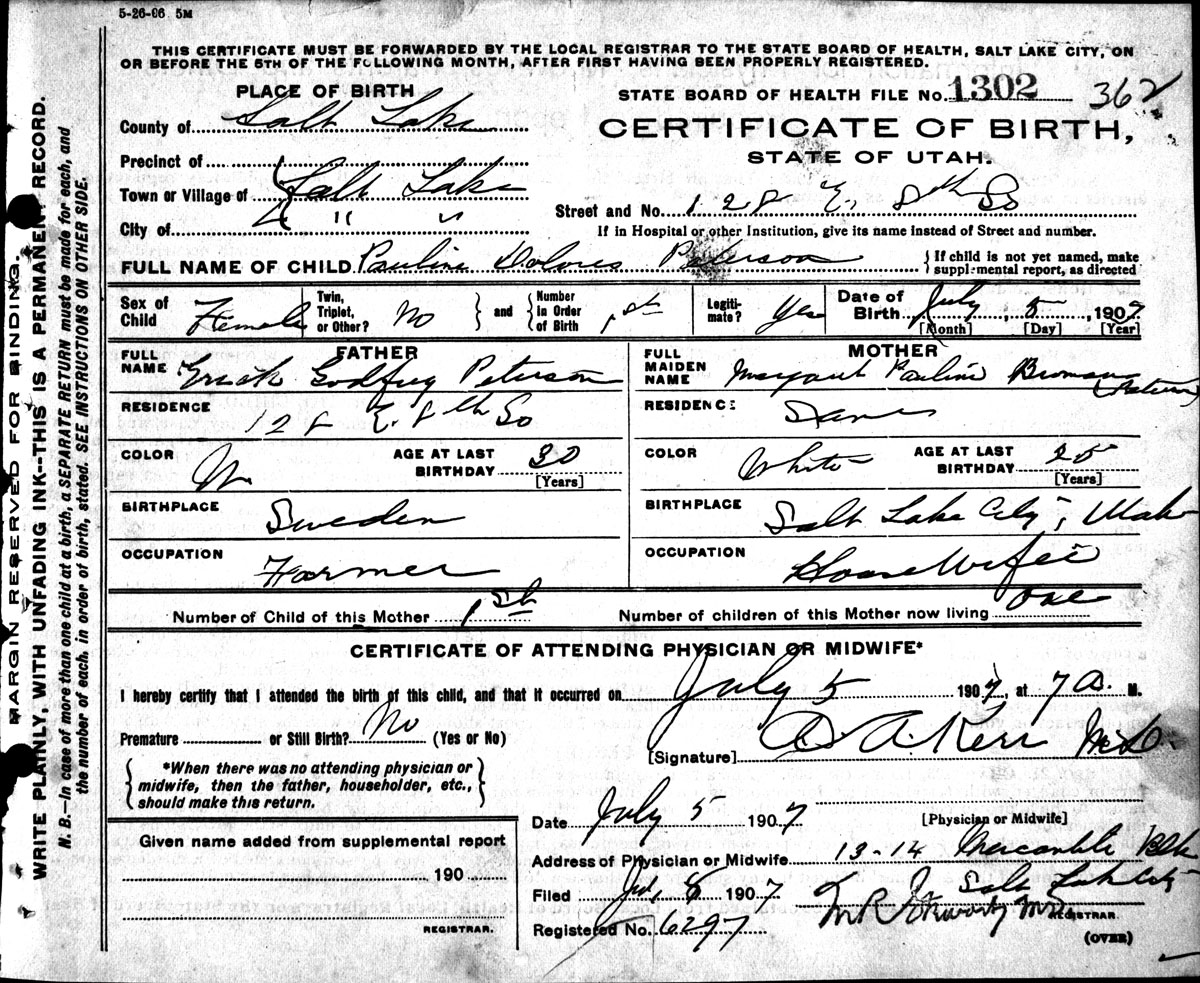 5-26-06 5M
THIS CERTIFICATE MUST BE FORWARDED BY THE LOCAL REGISTRAR TO THE STATE BOARD OF HEALTH, SALT LAKE CITY, ON
OR BEFORE THE 5TH OF THE FOLLOWING MONTH, AFTER FIRST HAVING BEEN PROPERLY REGISTERED.
MARGIN RESERVED FOR BINDING.
WRITE PLAINLY, WITH UNFADING INK--THIS IS A PERMANENT RECORD.
N. B.—In case of more than one child at a birth, a SEPARATE RETURN must be made for each, and
the number of each, in order of birth, stated. SEE INSTRUCTIONS ON OTHER SIDE.
PLACE OF BIRTH
County of Salt Lake
Precinct of
Town or Village of Salt Lake
City of " "
STATE BOARD OF HEALTH FILE No. 1302 362
CERTIFICATE OF BIRTH,
STATE OF UTAH.
Street and No. 128 E. 8th So
If in Hospital or other Institution, give its name instead of Street and number.
FULL NAME OF CHILD Pauline Dolores Peterson { If child is not yet named, make
supplemental report, as directed
Sex of Child Female Twin, Triplet, or Other? No } and { Number in Order of Birth 1st Legitimate? Yes Date of Birth July, 5, 1907
[Month] [Day] [Year]
FATHER
FULL NAME Godfrey Peterson
RESIDENCE 128 E. 8th So
COLOR W AGE AT LAST BIRTHDAY 30
[Years]
BIRTHPLACE Sweden
OCCUPATION Farmer
MOTHER
FULL MAIDEN NAME Margaret Pauline Broman
RESIDENCE Same
COLOR White AGE AT LAST BIRTHDAY 25
[Years]
BIRTHPLACE Salt Lake City, Utah
OCCUPATION House Wife
Number of Child of this Mother 1st Number of children of this Mother now living one
CERTIFICATE OF ATTENDING PHYSICIAN OR MIDWIFE*
I hereby certify that I attended the birth of this child, and that it occurred on July 5 1907, at 7 A. M.
Premature or Still Birth? No (Yes or No)
[Signature] A. A. Kerr M.D.
{ *When there was no attending physician or
midwife, then the father, householder, etc.,
should make this return. }
Date July 5 1907
[Physician or Midwife]
Address of Physician or Midwife 13-14 Mercantile Blk
Salt Lake City
Filed 1907
REGISTRAR.
Registered No. 6297
(OVER)
Given name added from supplemental report
190
REGISTRAR.